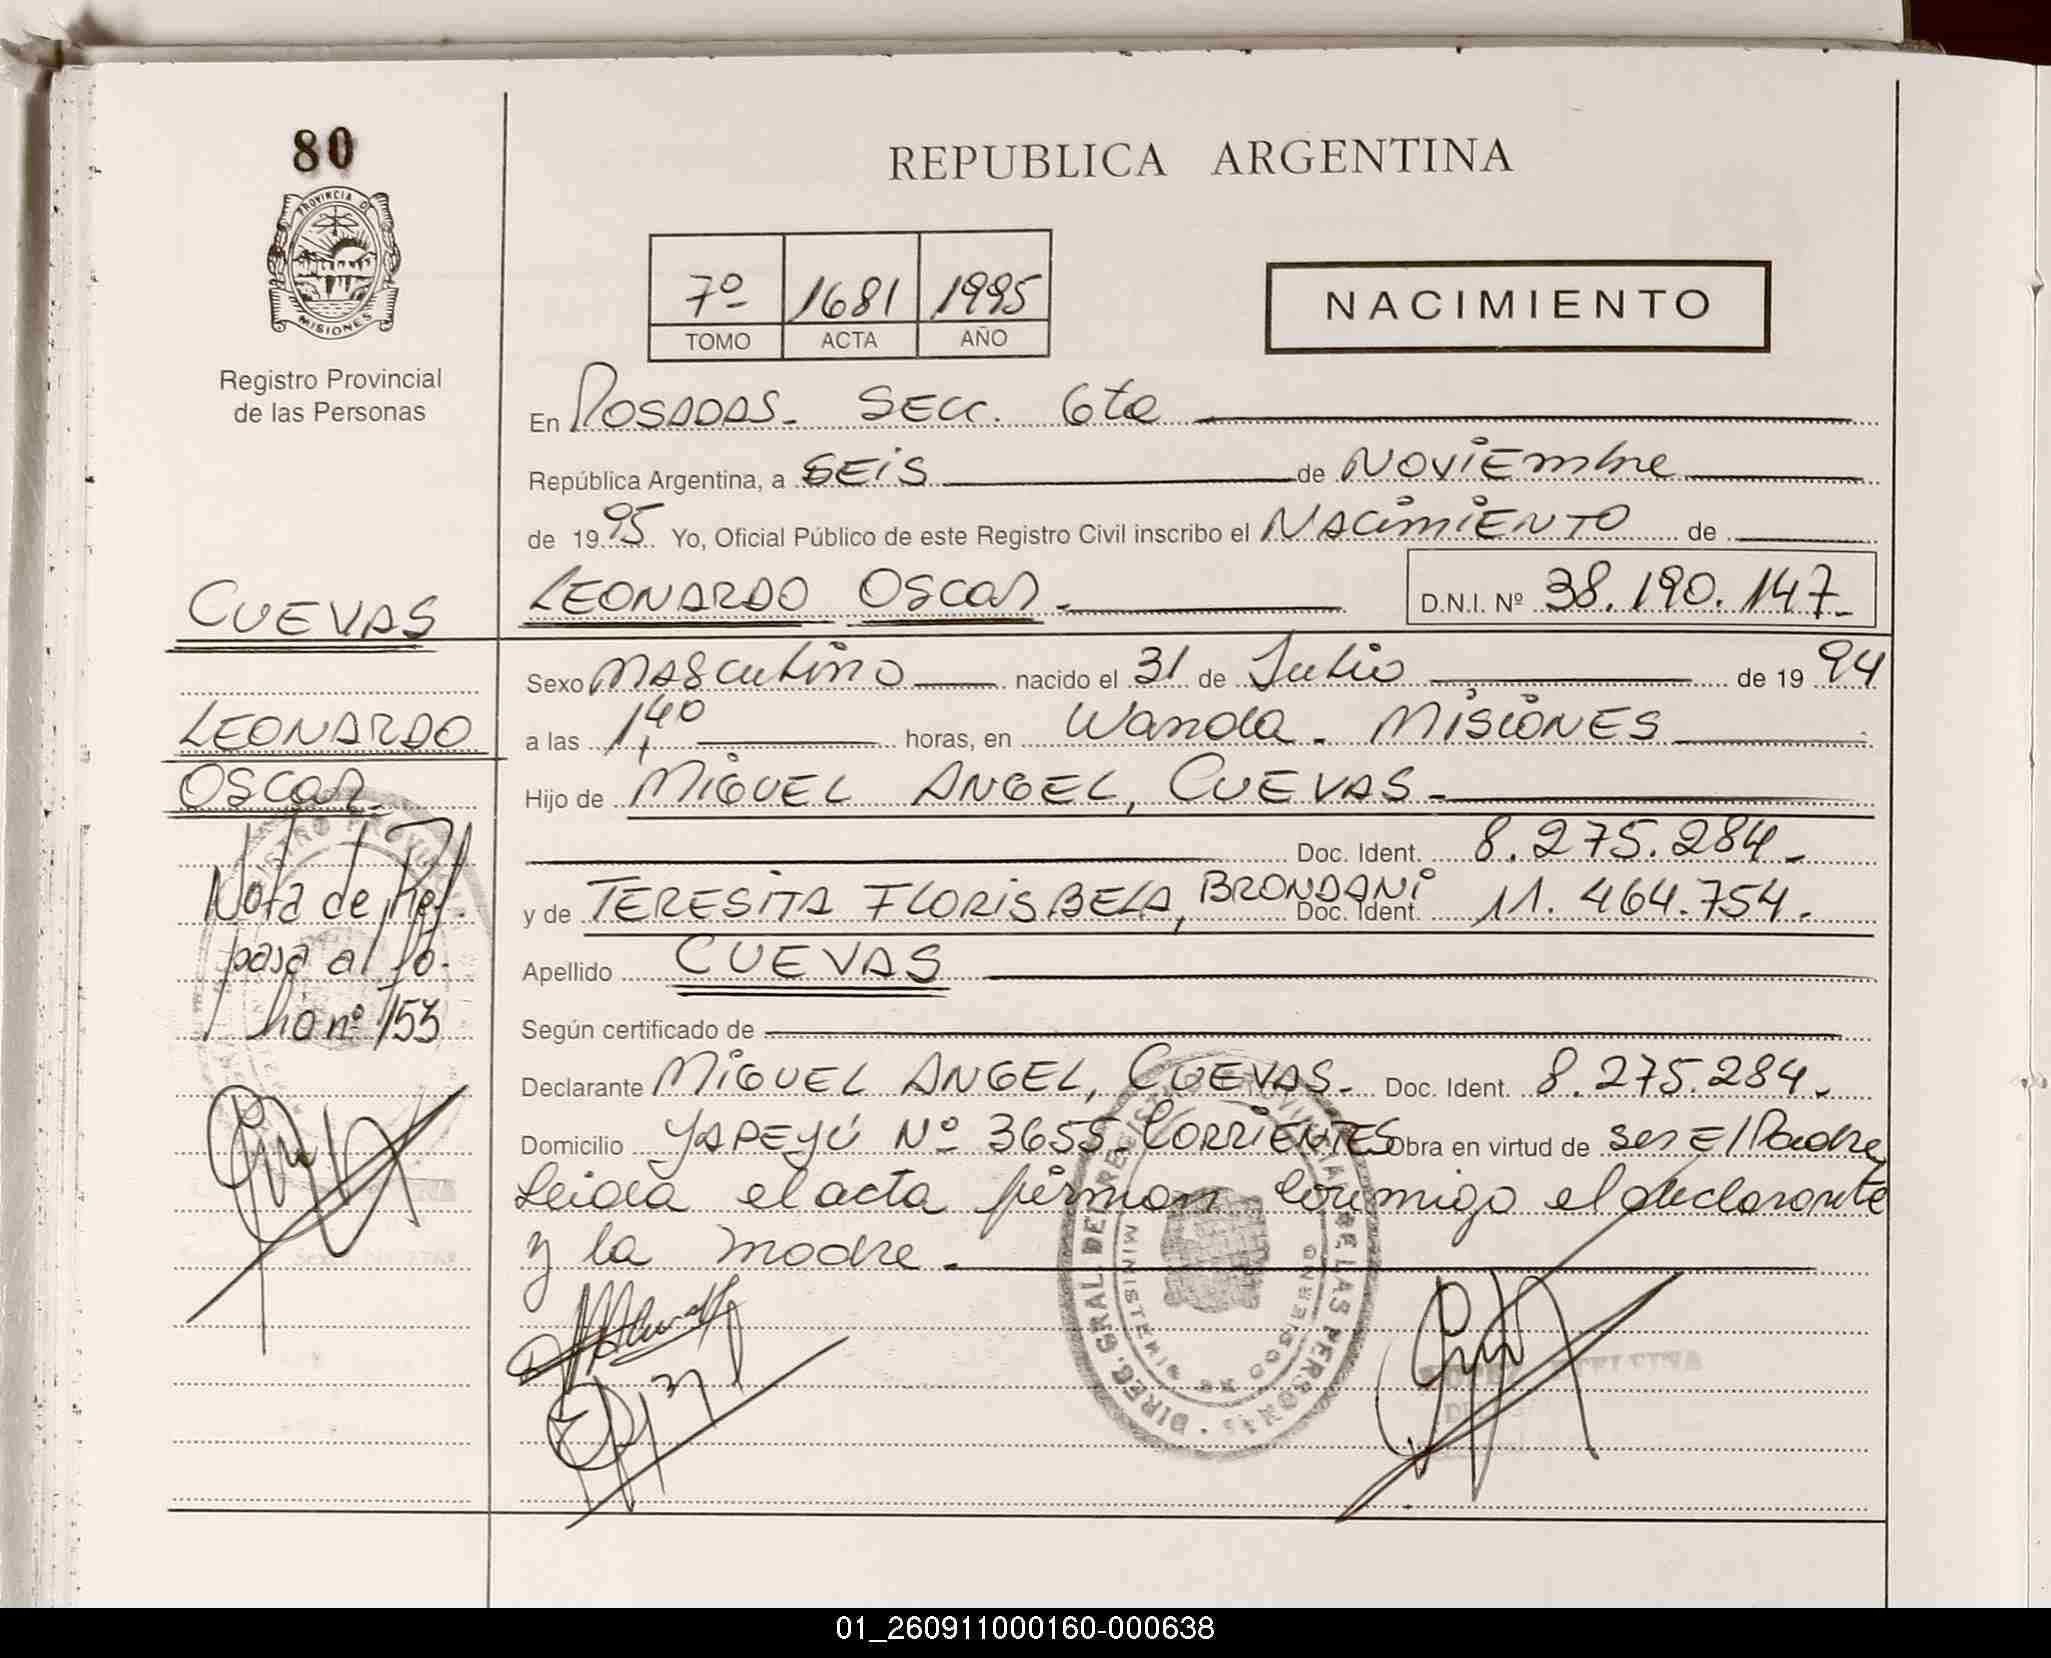 80
PROVINCIA DE
MISIONES
Registro Provincial
de las Personas
REPUBLICA ARGENTINA
7º 1681 1995
TOMO ACTA AÑO
NACIMIENTO
En POSADAS. SECC. 6ta
República Argentina, a SEIS de NOVIEMBRE
de 1995 Yo, Oficial Público de este Registro Civil inscribo el NACIMIENTO de
LEONARDO OSCAR. D.N.I. Nº 38.190.147.
Sexo MASCULINO nacido el 31 de Julio de 1994
a las 1,40 horas, en Wanda. MISIONES
Hijo de MIGUEL ANGEL, CUEVAS.
Doc. Ident. 8.275.284.
y de TERESITA FLORISBELA, BRONDANI Doc. Ident. 11.464.754.
Apellido CUEVAS
Según certificado de
Declarante MIGUEL ANGEL, CUEVAS. Doc. Ident. 8.275.284.
Domicilio YAPEYÚ Nº 3655 CORRIENTES Obra en virtud de ser El Padre
Leida el acta firman conmigo el declarante
y la madre.
CUEVAS
LEONARDO
OSCAR.
Nota de Ref.
pasa al fo-
lio nº 153
DIREC. GRAL. DEL REGISTRO PROVINCIAL DE LAS PERSONAS
MINISTERIO DE GOBIERNO
01_260911000160-000638